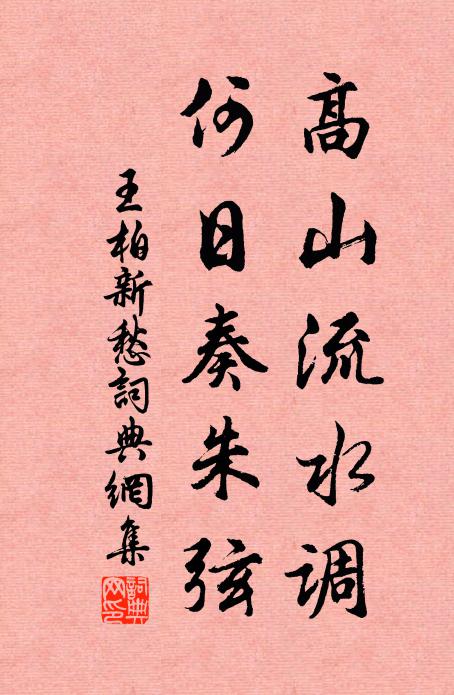 高山流水调
何日奏朱弦
王柏新愁詞典網集
詞典
网印